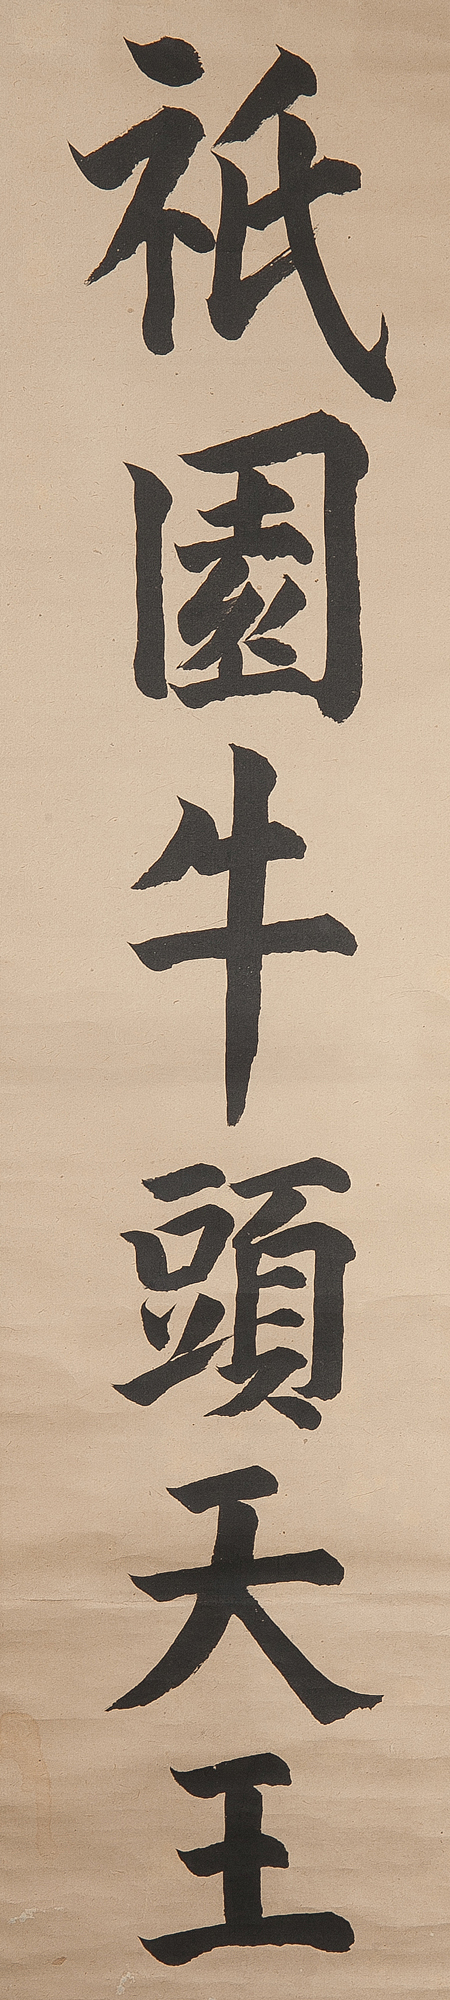 祇園牛頭天王